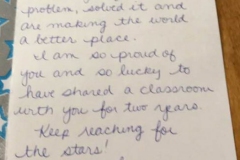 problem, solved it and
are making the world
a better place.
I am so proud of
you and so lucky to
have shared a classroom
with you for two years.
Keep reaching for
the stars!